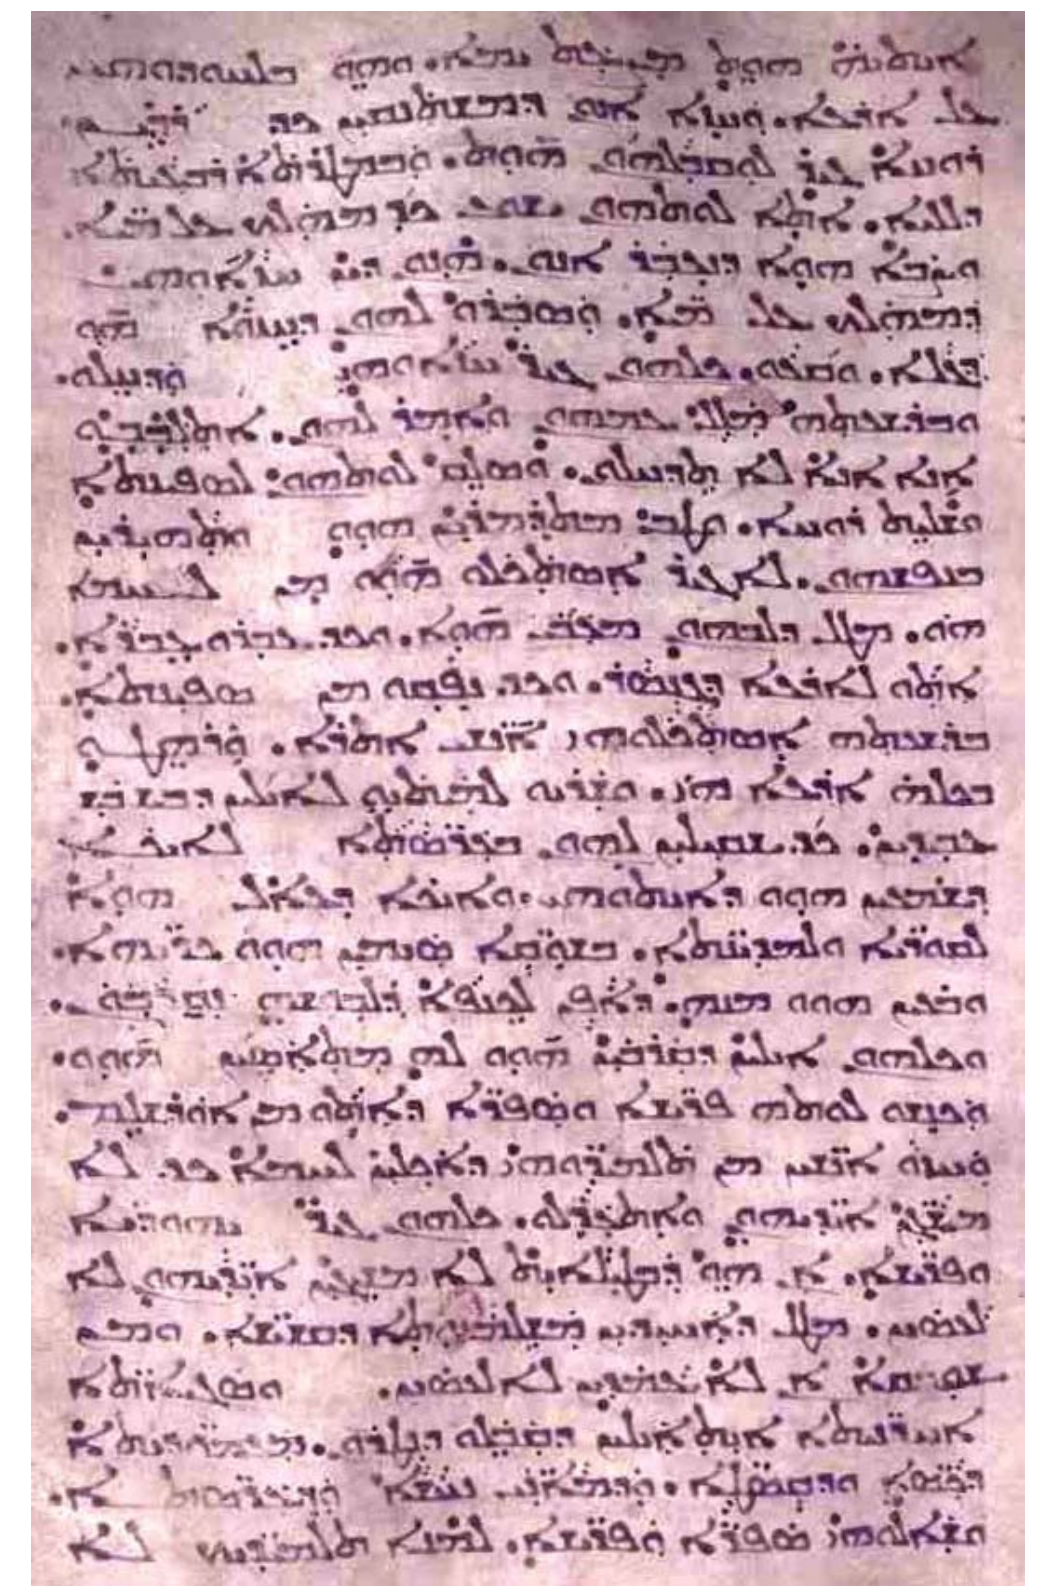 ܐܝܬܝܗ̇ ܗܘܬ ܒܡܨܥܬ ܝܡܐ. ܘܗܘ ܒܠܚܘܕܘܗܝ
ܥܠ ܐܪܥܐ. ܘܚܙܐ ܐܢܘܢ ܕܡܫܬܢܩܝܢ ܟܕ ܪܕܝܢ.
ܪܘܚܐ ܓܝܪ ܠܩܘܒܠܗܘܢ ܗܘܬ. ܘܒܡܛܪܬܐ ܪܒܝܥܝܬܐ
ܕܠܠܝܐ. ܐܬܐ ܠܘܬܗܘܢ ܝܫܘܥ ܟܕ ܡܗܠܟ ܥܠ ܡ̈ܝܐ.
ܘܨܒܐ ܗܘܐ ܕܢܥܒܪ ܐܢܘܢ. ܗܢܘܢ ܕܝܢ ܚܙܐܘܗܝ
ܕܡܗܠܟ ܥܠ ܡ̈ܝܐ. ܘܣܒܪܘ ܠܗܘܢ ܕܚܙܘܐ ܗܘ
ܕܓܠܐ. ܘܩܥܘ. ܟܠܗܘܢ ܓܝܪ ܚܙܐܘܗܝ ܘܕܚܠܘ.
ܘܒܪܫܥܬܗ ܡܠܠ ܥܡܗܘܢ ܘܐܡܪ ܠܗܘܢ. ܐܬܠܒܒܘ
ܐܢܐ ܐܢܐ ܠܐ ܬܕܚܠܘܢ. ܘܣܠܩ ܠܘܬܗܘܢ ܠܣܦܝܢܬܐ
ܘܫܠܝܬ ܪܘܚܐ. ܘܛܒ ܡܬܕܡܪܝܢ ܗܘܘ ܘܬܗܝܪܝܢ
ܒܢܦܫܗܘܢ. ܠܐ ܓܝܪ ܐܣܬܟܠܘ ܗܘܘ ܡܢ ܠܚܡܐ
ܗܘ. ܡܛܠ ܕܠܒܗܘܢ ܡܥܒܝ ܗܘܐ. ܘܟܕ ܥܒܪܘ ܥܒܪܐ.
ܐܬܘ ܠܐܪܥܐ ܕܓܢܣܪ. ܘܟܕ ܢܦܩܘ ܡܢ ܣܦܝܢܬܐ.
ܒܪܫܥܬܗ ܐܣܬܟܠܘܗܝ ܐܢܫܝ ܐܬܪܐ. ܘܪܗܛܘ
ܒܟܠܗ̇ ܐܪܥܐ ܗܝ. ܘܫܪܝܘ ܠܡܝܬܝܘ ܠܐܝܠܝܢ ܕܒܝܫ ܒܝܫ
ܥܒܝܕܝܢ. ܟܕ ܫܩܝܠܝܢ ܠܗܘܢ ܒܥܪ̈ܣܬܐ ܠܐܝܟܐ
ܕܫܡܥܝܢ ܗܘܘ ܕܐܝܬܘܗܝ. ܘܐܝܟܐ ܕܥܐܠ ܗܘܐ
ܠܩܘܪ̈ܝܐ ܘܠܡܕܝ̈ܢܬܐ. ܒܫܘ̈ܩܐ ܣܝܡܝܢ ܗܘܘ ܟܪ̈ܝܗܐ.
ܘܒܥܝܢ ܗܘܘ ܡܢܗ. ܕܐܦܢ ܠܟܢܦܐ ܕܠܒܘܫܗ ܢܩܪܒܘܢ.
ܘܟܠܗܘܢ ܐܝܠܝܢ ܕܩܪܒܝܢ ܗܘܘ ܠܗ ܡܬܐܣܝܢ ܗܘܘ.
ܘܟܢܫܘ ܠܘܬܗ ܦܪ̈ܝܫܐ ܘܣܦܪ̈ܐ ܕܐܬܘ ܡܢ ܐܘܪܫܠܡ.
ܘܚܙܘ ܐܢܫܝܢ ܡܢ ܬܠܡܝܕ̈ܘܗܝ ܕܐܟܠܝܢ ܠܚܡܐ ܟܕ ܠܐ
ܡܫܓܢ ܐܝܕ̈ܝܗܘܢ ܘܐܬܥܕܠܘ. ܟܠܗܘܢ ܓܝܪ ܝܗܘܕ̈ܝܐ
ܘܦܪ̈ܝܫܐ. ܐܢ ܗܘ ܕܒܛܝܠܐܝܬ ܠܐ ܡܫܝܓܝܢ ܐܝܕ̈ܝܗܘܢ ܠܐ
ܠܥܣܝܢ. ܡܛܠ ܕܐܚܝܕܝܢ ܡܫܠܡܢܘܬܐ ܕܩܫ̈ܝܫܐ. ܘܡܢ
ܫܘܩܐ ܐܢ ܠܐ ܥܡܕܝܢ ܠܐ ܠܥܣܝܢ. ܘܣܓܝ̈ܐܬܐ
ܐܚܪ̈ܢܝܬܐ ܐܝܬ ܐܝܠܝܢ ܕܩܒܠܘ ܕܢܛܪܘܢ. ܡܥܡܘܕ̈ܝܬܐ
ܕܟܣ̈ܐ ܘܕܩܣ̈ܛܐ. ܘܕܡܐܢ̈ܝ ܢܚܫܐ ܘܕܥܪ̈ܣܬܐ.
ܘܫܐܠܘܗܝ ܣܦܪ̈ܐ ܘܦܪ̈ܝܫܐ. ܠܡܢܐ ܬܠܡܝܕ̈ܝܟ ܠܐ